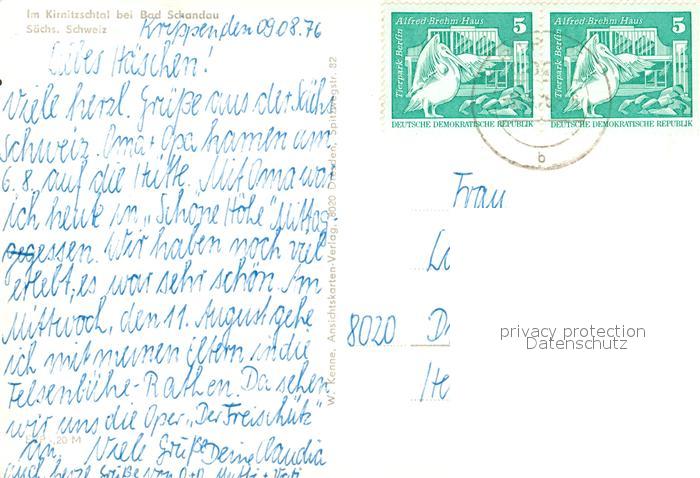 Im Kirnitzschtal bei Bad Schandau
Sächs. Schweiz
Kreppen den 09.08.76
Liebes Häschen!
Viele herzl. Grüße aus der Sächs.
Schweiz. Oma + Opa kamen am
6.8. auf die Hütte. Mit Oma war
ich heute in „Schöne Höhe" Mittag-
essen. Wir haben noch viel
erlebt, es war sehr schön. Am
Mittwoch, den 11. August gehe
ich mit meinen Eltern in die
Felsenbühne-Rathen. Da sehen
wir uns die Oper „Der Freischütz"
an. Viele Grüße Deine Claudia
auch herzl. Grüße von O+O, Mutti + Vati
20 M
W. Kenne, Ansichtskarten-Verlag, 8020 Dresden, Spitzwegstr. 82
Alfred-Brehm-Haus 5
Tierpark Berlin
DEUTSCHE DEMOKRATISCHE REPUBLIK
Alfred-Brehm-Haus 5
Tierpark Berlin
DEUTSCHE DEMOKRATISCHE REPUBLIK
b
Frau
8020 D
privacy protection
Datenschutz
He